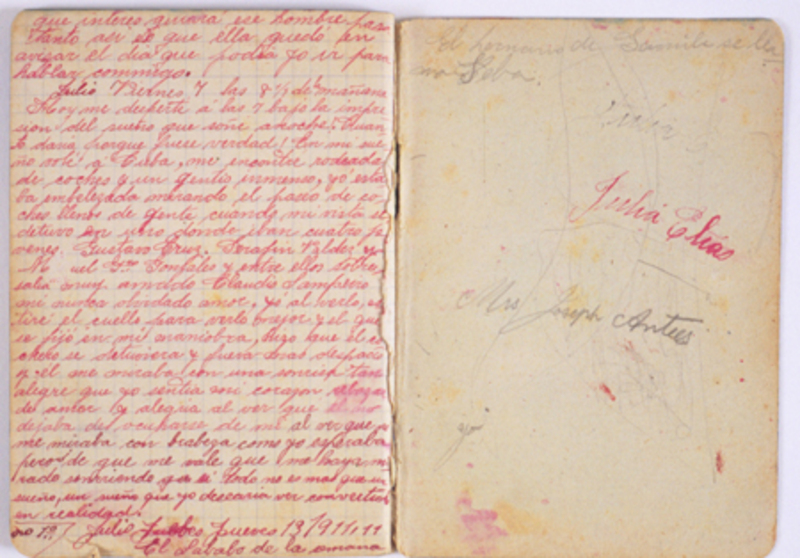 que interes guiará ese hombre para
tanto asi es que ella quedó en
avisar el dia que podia yo ir para
hablar conmigo.
Julio Viernes 7 las 8½ de la mañana
Hoy me desperté á las 7 bajo la impre
sion del sueño que soñe anoche, Cuan
to daria porque fuese verdad! En mi sue
ño volé á Cuba, me encontre rodeada
de coches y un gentio inmenso, yó esta
ba embelezada mirando el paseo de co
ches llenos de gente cuando mi vista se
detuvo en uno donde iban cuatro jo
venes. Gustavo Cruz. Serafin Valdes, y
Gonzales y entre ellos sobre
salia muy Claudio Sampeiro
mi nunca olvidado amor, yo al verlo, es
tire el cuello para verlo mejor y el que
se fijó en mi maniobra, hizo que el co
chero se detuviera y fuera mas despacio
y el me miraba con una sonrisa tan
alegre que yo sentia mi corazon
de amor y alegria al ver que el no
dejaba de de mi al ver que
me miraba con como yo esperaba
pero de que me vale que me haya mi
rado sonriendo ya si todo no es mas que un
sueño, un sueño que yo desearia ver convertido
en realidad.
Julio Jueves 13, 1911, 11
El Sabado de la semana
El hermano de Gamila se lla
ma Seba.
Julia
Julia Elias
Mrs Joseph Antees
yo